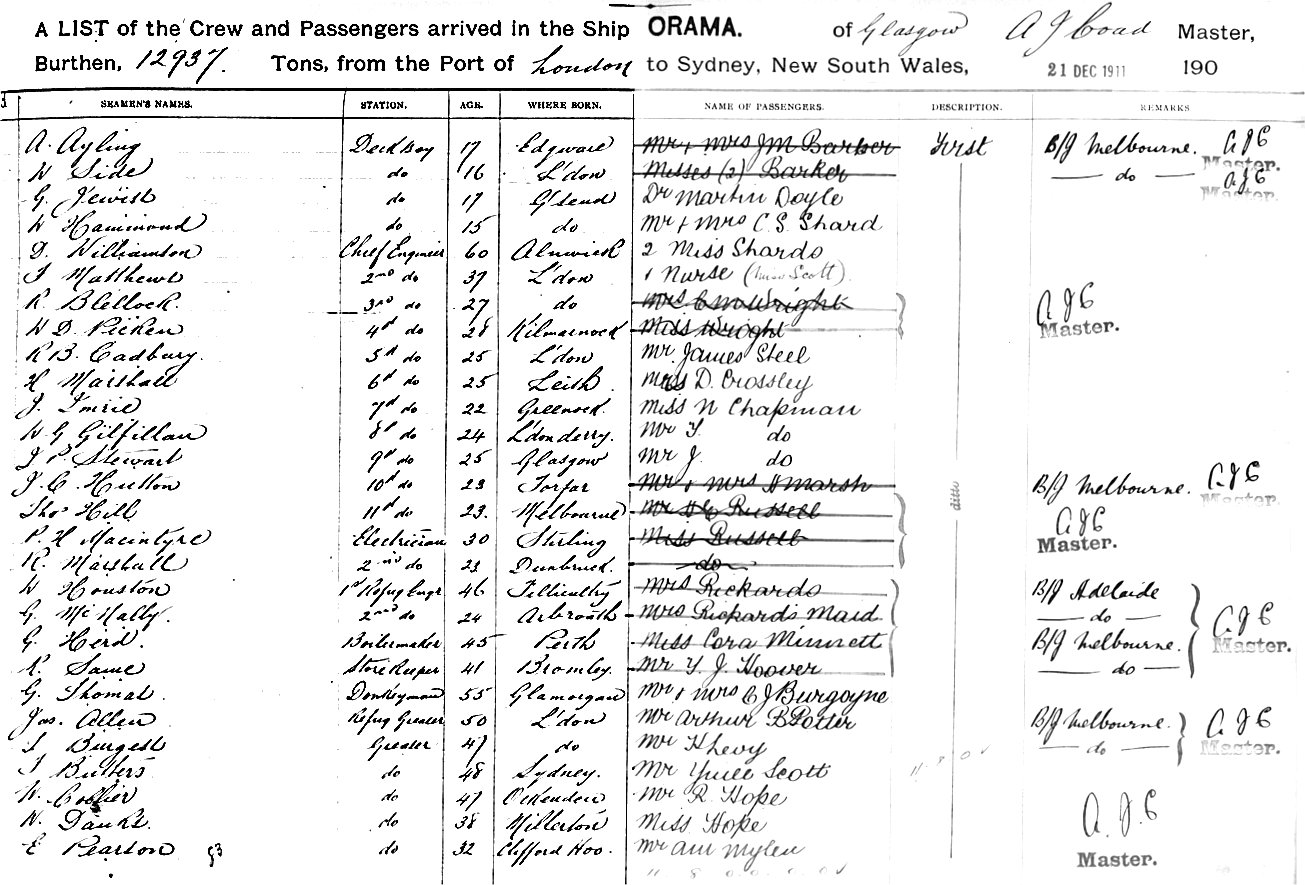 A LIST of the Crew and Passengers arrived in the Ship ORAMA. of Glasgow A J Coad Master,
Burthen, 12937. Tons, from the Port of London to Sydney, New South Wales, 21 DEC 1911 190
SEAMEN'S NAMES. STATION. AGE. WHERE BORN. NAME OF PASSENGERS. DESCRIPTION. REMARKS
A. Ayling Deck Boy 17 Edgware Mr & Mrs J M Barker First B/J Melbourne. A J C Master.
W Side do 16 L'don Misses (2) Barker do A J C Master.
G. Jewish do 17 G'send Dr Martin Doyle
W Hammond do 15 do Mr & Mrs C. S. Shard
D. Williamson Chief Engineer 60 Alnwick 2 Miss Shards
J Matthews 2nd do 37 L'don 1 Nurse (Miss Scott)
R. Blellock. 3rd do 27 do Mrs C M Wright A J C
W D. Picken 4th do 28 Kilmarnock Miss Wright Master.
R B. Cadbury. 5th do 25 L'don Mr James Steel
H Marshall 6th do 25 Leith. Miss D. Crossley
J. Imrie 7th do 22 Greenock. Miss N Chapman
W G Gilfillan 8th do 24 L'donderry. Mr Y. do
J P. Stewart 9th do 25 Glasgow Mr J. do
J. C. Hutton 10th do 23 Forfar Mr & Mrs H Marsh B/J Melbourne. A J C Master.
Thos Hill 11th do 23. Melbourne Mr H C Russell ditto A J C
P. H Macintyre Electrician 30 Stirling Miss Russell Master.
R. Marshall 2nd do 23 do
W Houston 1st Refrig Engr 46 Tillicoultry Mrs Rickards B/J Adelaide
G. McNally. 2nd do 24 Arbroath Mrs Rickards Maid do A J C
G. Herd. Boilermaker 45 Perth Miss Cora Minnett B/J Melbourne. Master.
R. Same Storekeeper 41 Bromley. Mr Y. J. Hoover do
G. Thomas. Donkeyman 55 Glamorgan Mr & Mrs C J Burgoyne
Jas. Allen Refrig Greaser 50 L'don Mr Arthur B Potter B/J Melbourne. A J C
J Burgess Greaser 47 do Mr H Levy do Master.
J Butters do 48 Sydney. Mr Yuill Scott
W. Collier do 47 Ockenden Mr R. Hope A. J. C
W. Danks. do 38 Millerton Miss Hope
E Pearson 93 do 32 Clifford Hoo. Mr Mylen Master.